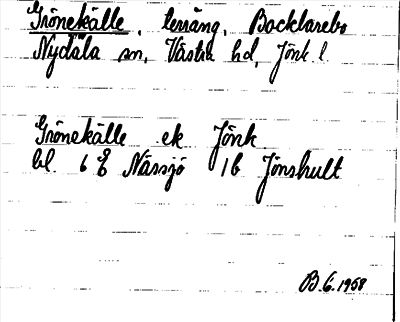 Grönekälle, terräng, Bocklarebo
Nydala sn, Västra hd, Jönk. l.
Grönekälle ek Jönk
bl. 6 E Nässjö 1b Jönshult
B.G. 1958